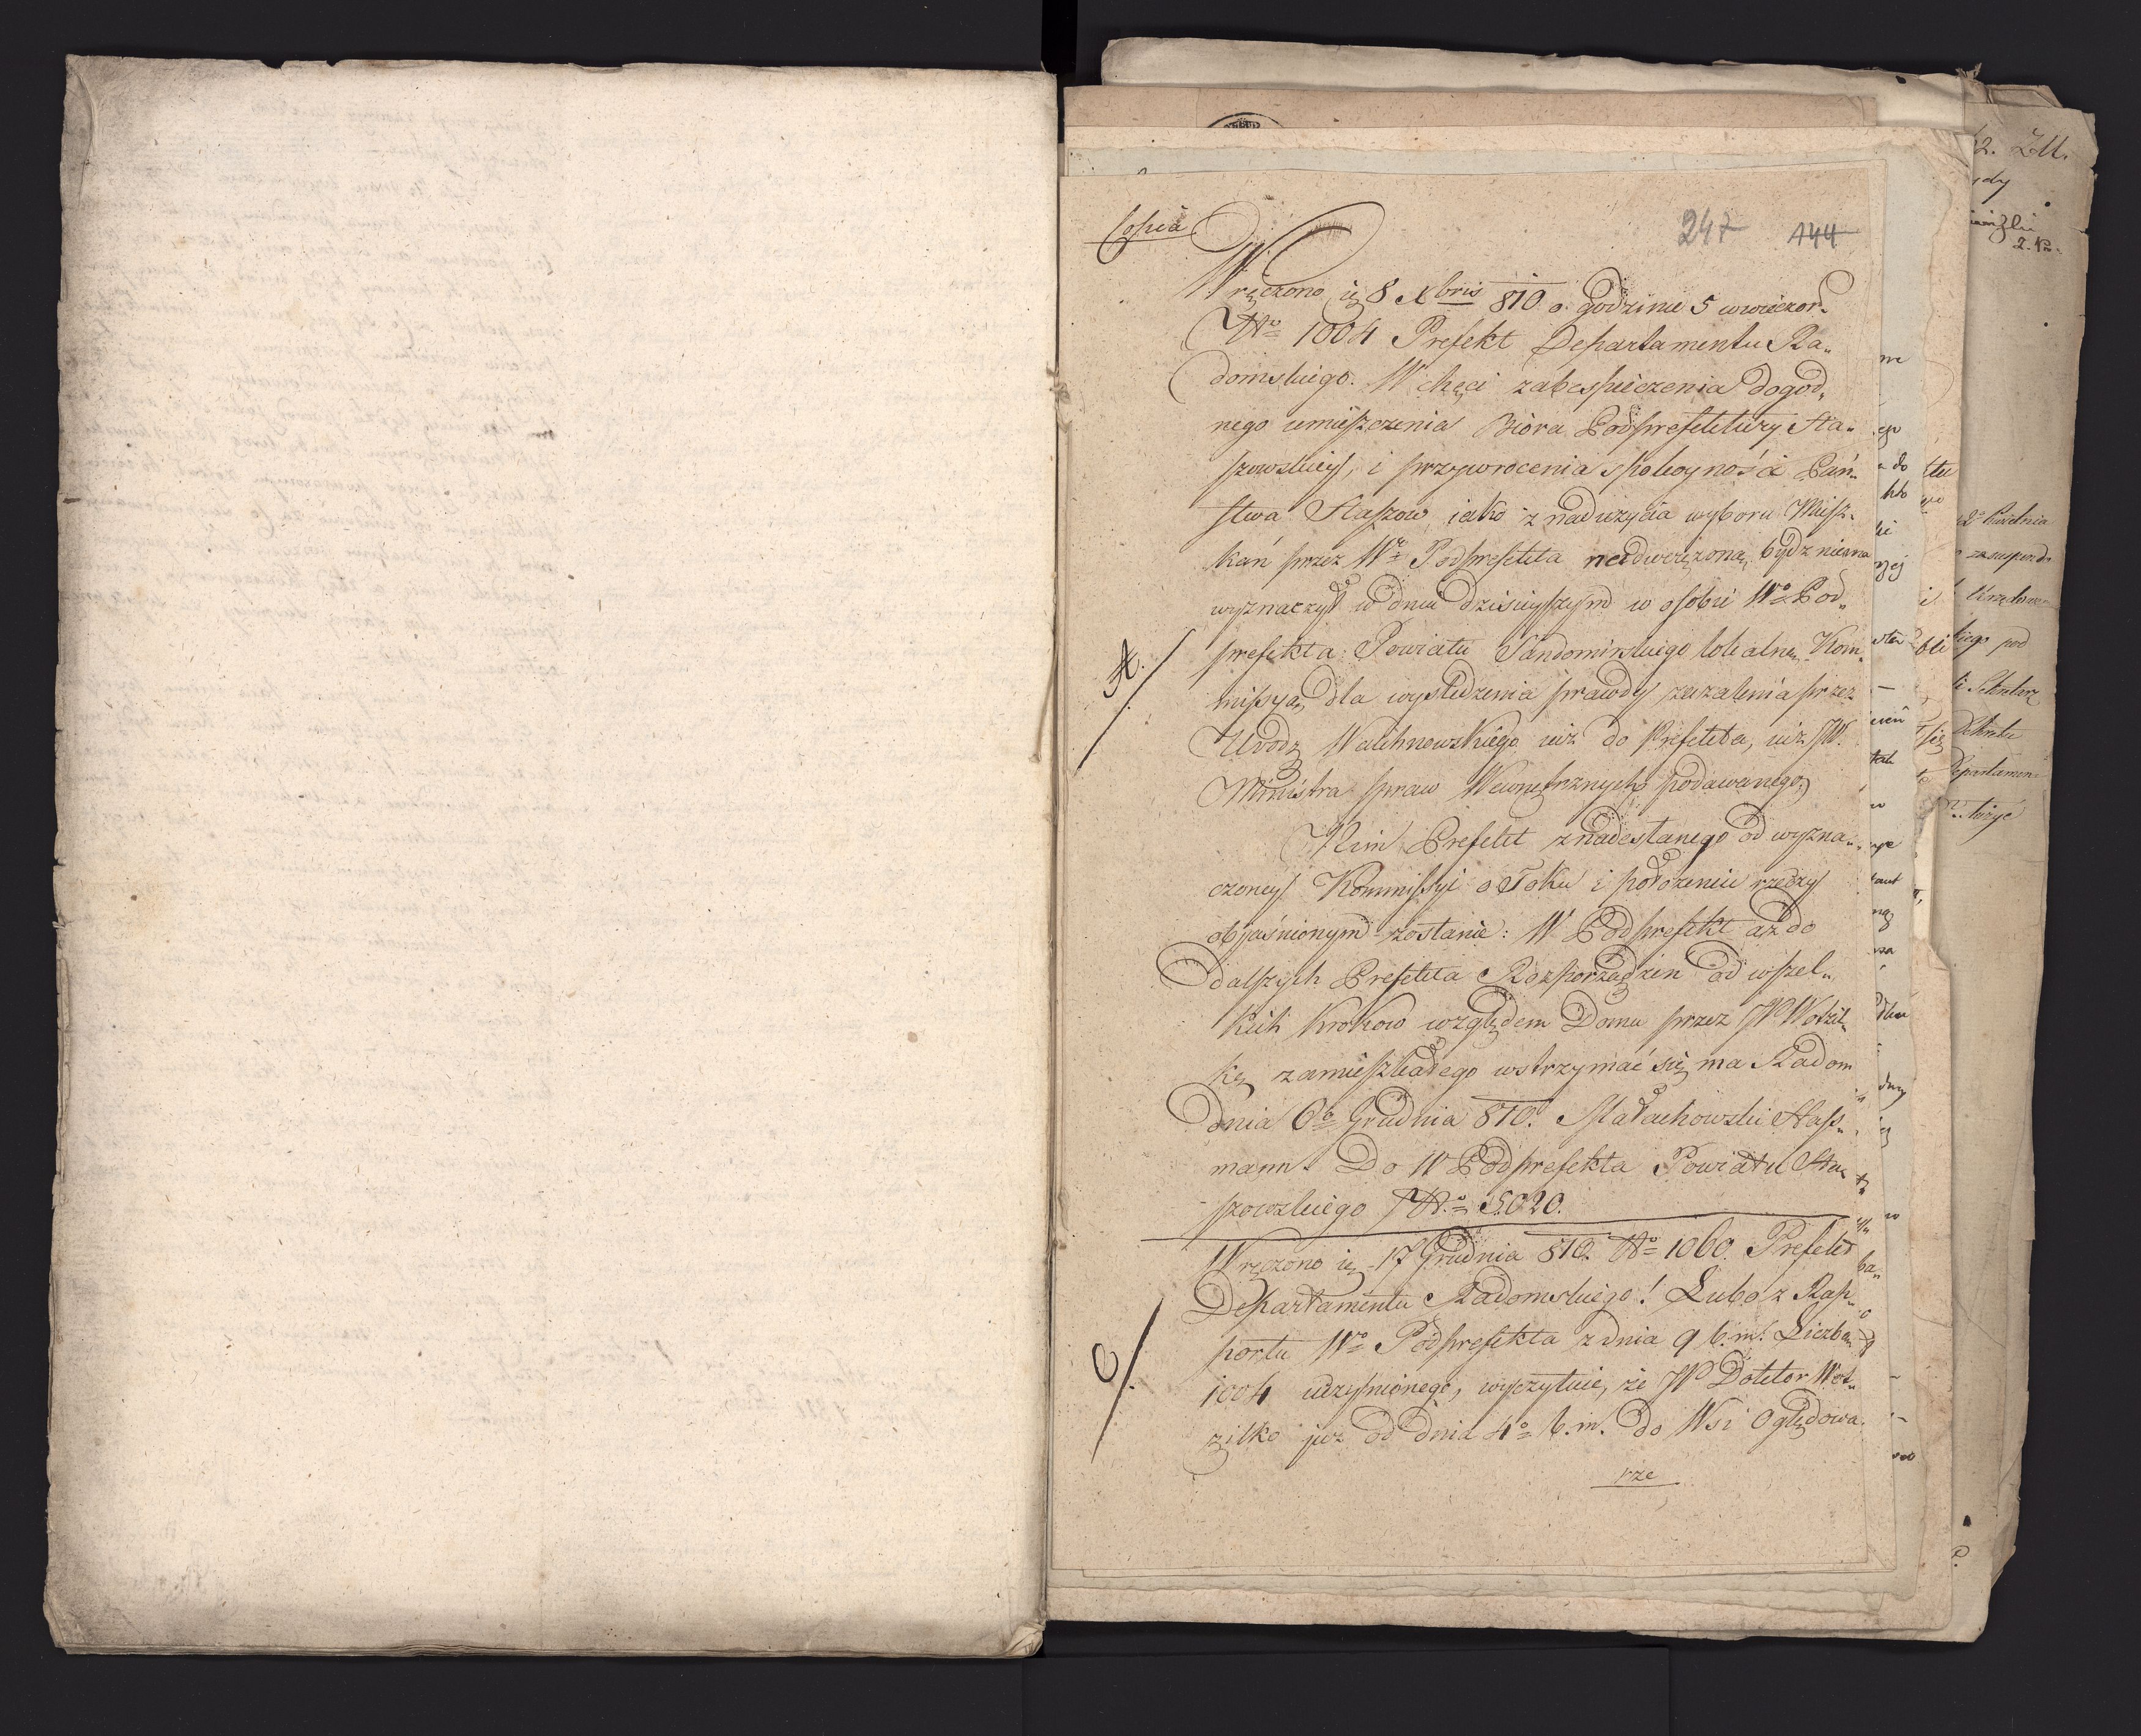 Copia
247 144
Wręczono ię 8 Xbris 810 o godzinie 5 wwieczor.
No 1004 Prefekt Departamentu Ra„
domskiego. W chęci zabespieczenia dogod„
nego umieszczenia Biora Podprefektury Sta„
szowskiey, i przywrocenia spokoynośći Pań„
stwa Staszow, iako z nadużycia wyboru Miesz„
kań przez Wo Podprefekta nadwerężoną, bydź mieną
wyznaczył w dniu dzisieyszym w osobie Wo Pod„
prefekta Powiatu Sandomirskiego lokalną Kom„
A.
missyą dla wysledzenia prawdy zażalenia przez
Urodz Walchnowskiego iuż do Prefekta, iuż JW.
Ministra spraw Wewnętrznych podawanego,
Nim Prefekt z nadesłanego od wyzna„
czoney Kommissyi o Toku i położeniu rzeczy
obiaśnionym zostanie: W Podprefekt aż do
dalszych Prefekta Rozporządzen od wszel„
kich krokow względem Domu przez JW Wotzil„
kę zamieszkałego wstrzymać się ma Radom
dnia 6o Grudnia 810. Małachowski Hass„
mann. Do W Podprefekta Powiatu Sta„
szowskiego No 5020.
Wręczono ię 17 Grudnia 810. No 1060. Prefekt
Departamentu Radomskiego! Lubo z Rap„
portu Wo Podprefekta z dnia 9 b. m. Liczbą
C.
1004 uczynionego, wyczytuie, że JW Doktor Wot„
zilko już od dnia 4o b. m. do Wsi Oględowa.
rze